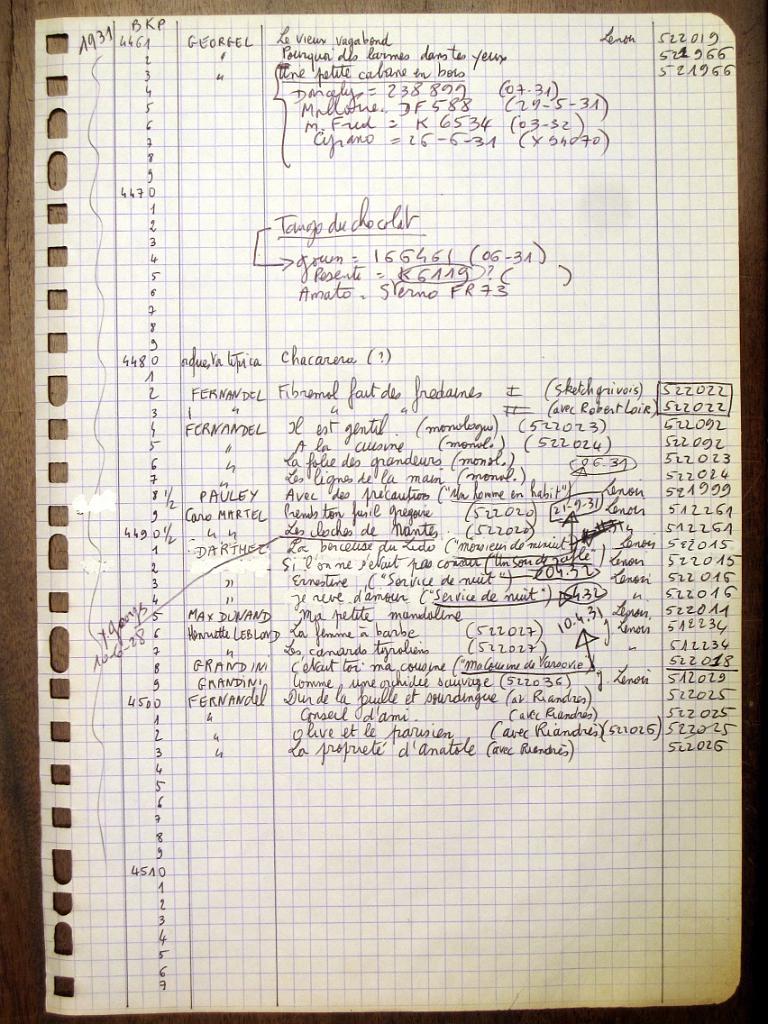 1931 BKP
4461 GEORGEL Le vieux vagabond Lenoir 522019
2 " Pourquoi des larmes dans tes yeux 521966
3 " Une petite cabane en bois 521966
4 = 238899 (07-31)
5 DF 588 (29-5-31)
6 M. Fred = K 6534 (03-32)
7 Cyrano = 26-6-31 (X 94070)
8
9
4470
1
2 Tango du chocolat
3
4 = 166461 (06-31)
5 Pesenti = K6119 ? ( )
6 Amato - Sterno FR 73
7
8
9
4480 orquesta tipica Chacarera (?)
1
2 FERNANDEL Fibremol fait des fredaines I (sketch grivois) 522022
3 " " " II (avec Robert Loir) 522022
4 FERNANDEL Il est gentil (monologue) (522023) 522092
5 " A la cuisine (monol.) (522024) 522092
6 " La folie des grandeurs (monol.) 522023
7 " Les lignes de la main (monol.) 522024
8 1/2 PAULEY Avec des précautions ("Un homme en habit") Lenoir 521999
9 Caro MARTEL Prends ton fusil Grégoire (522020) 21-9-31 Lenoir 512261
4490 1/2 " " Les cloches de Nantes (522020) Lenoir 512261
1 DARTHEZ La berceuse du Lido ("monsieur de minuit") Lenoir 522015
2 Si l'on ne s'était pas connu ("Un soir de rafle") Lenoir 522015
3 " Ernestine ("Service de nuit") 04.32 Lenoir 522016
4 " Je rêve d'amour ("Service de nuit") 4.32 " 522016
5 MAX DUNAND Ma petite mandoline Lenoir 522011
6 Henriette LEBLOND La femme à barbe (522027) 10.4.31 J. Lenoir 512234
7 " Les canards tyroliens (522027) " 512234
8 GRANDINI C'était toi ma cousine ("Ma Cousine de Varsovie") 522018
9 GRANDINI Comme une orchidée sauvage (522036) J. Lenoir 512029
4500 FERNANDEL Dur de la feuille et sourdingue (av. Riandrès) 522025
1 " Conseil d'ami (avec Riandrès) 522025
2 " Olive et le parisien (avec Riandrès) (522026) 522025
3 " La propriété d'anatole (avec Riandrès) 522026
4
5
6
7
8
9
4510
1
2
3
4
5
6
7
10-6-28